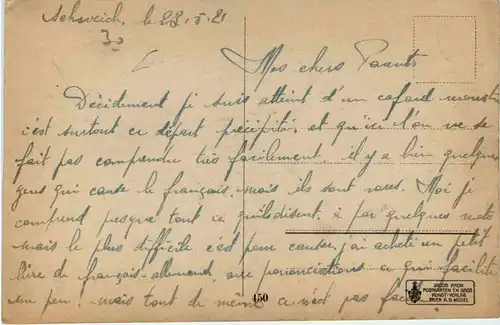 Schweich, le 22.5.21
Mes chers Parents
Décidement je suis atteint d'un cafard monstre
c'est surtout ce départ précipité, et qu'ici l'on ne se
fait pas comprendre très facilement, il y a bien quelques
gens qui cause le français, mais ils sont rares. Moi je
comprend presque tout ce qu'ils disent, à par quelques mots
mais le plus difficile c'est pour causer, j'ai acheté un petit
livre de français-allemand, avec prononciations ce qui facilite
un peu, mais tout de même ce n'est pas
450
JACOB KRON
POSTKARTEN EN GROS
KUNST-VERLAG
TRIER A. D. MOSEL